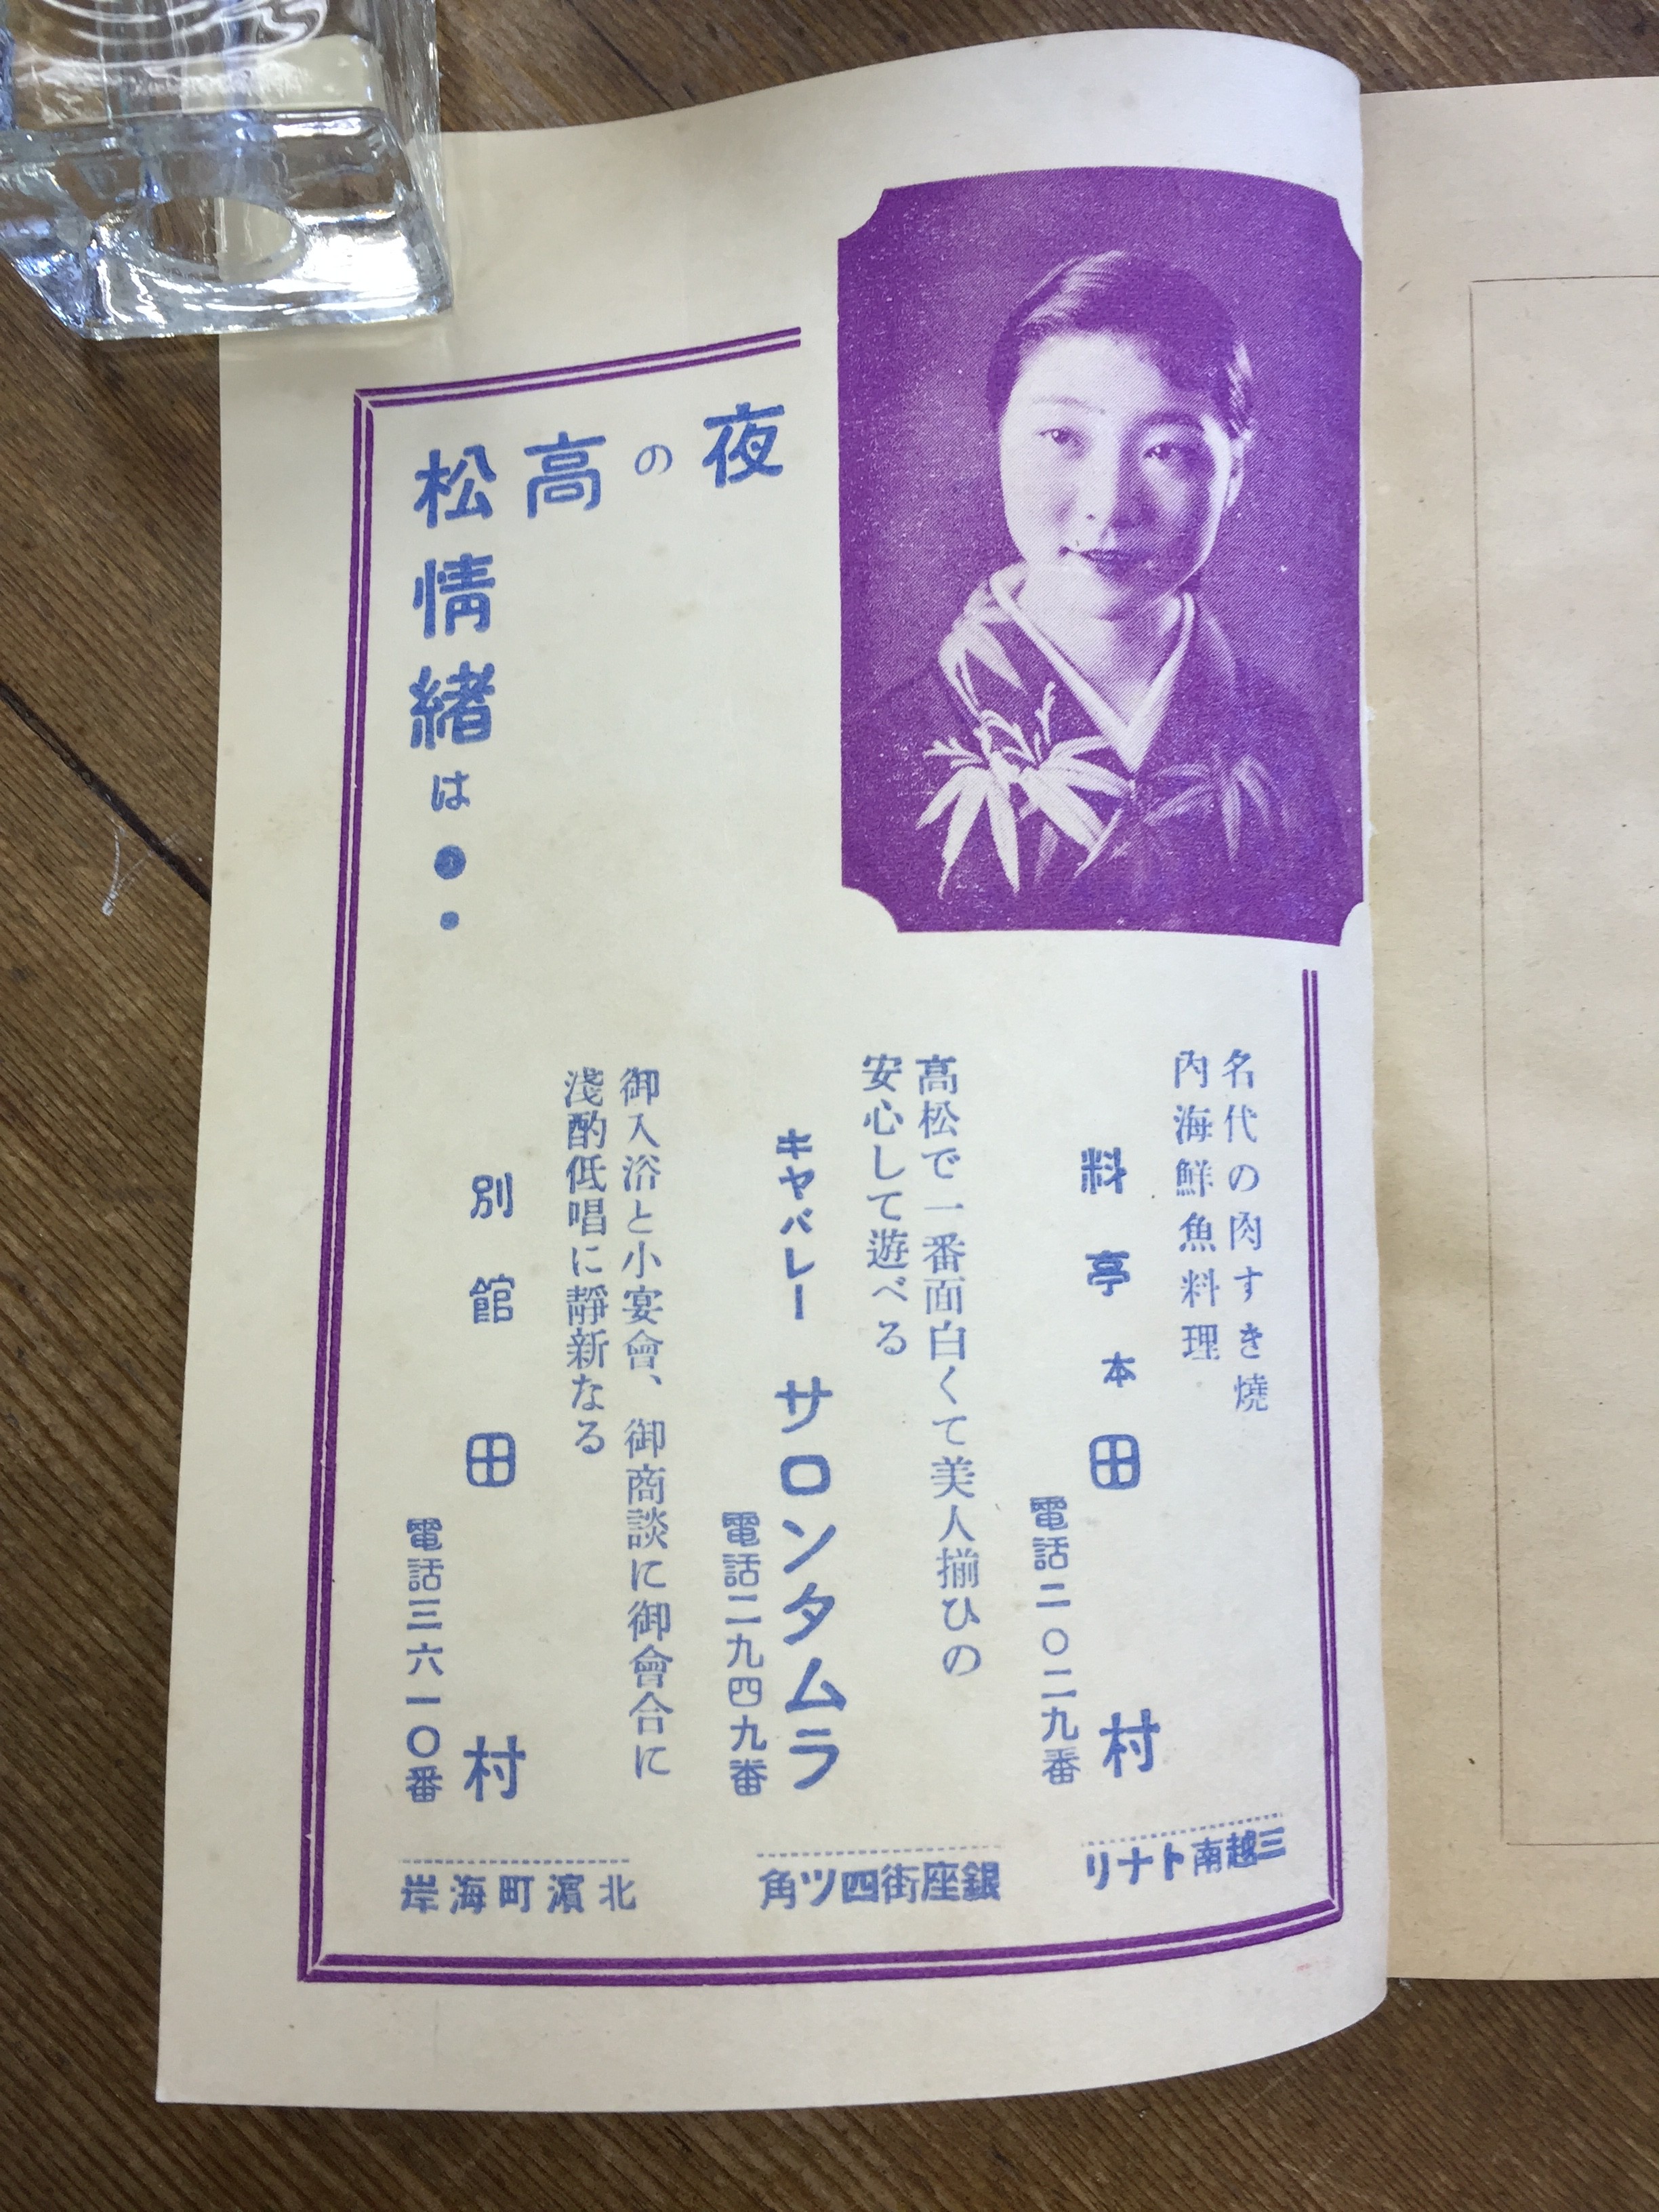 夜の高松情緒は・・
名代の肉すき燒
内海鮮魚料理
料亭本田村
電話二〇二九番
三越南トナリ
高松で一番面白くて美人揃ひの
安心して遊べる
キャバレー サロンタムラ
電話二九四九番
銀座街四ツ角
御入浴と小宴會、御商談に御會合に
淺酌低唱に靜新なる
別館田村
電話三六一〇番
北濱町海岸